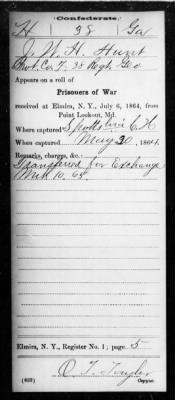 Confederate.
H 38 Ga
J. W. H. Hunt
Pvt. Co. F, 38 Regt. Geo.
Appears on a roll of
Prisoners of War
received at Elmira, N. Y., July 6, 1864, from
Point Lookout, Md.
Where captured Spottslvni C. H
When captured May 20, 1864
Remarks, charges, &c.:
Transferred for Exchange
Mch 10, 65.
Elmira, N. Y., Register No. 1; page 5
O. T. Taylor
Copyist.